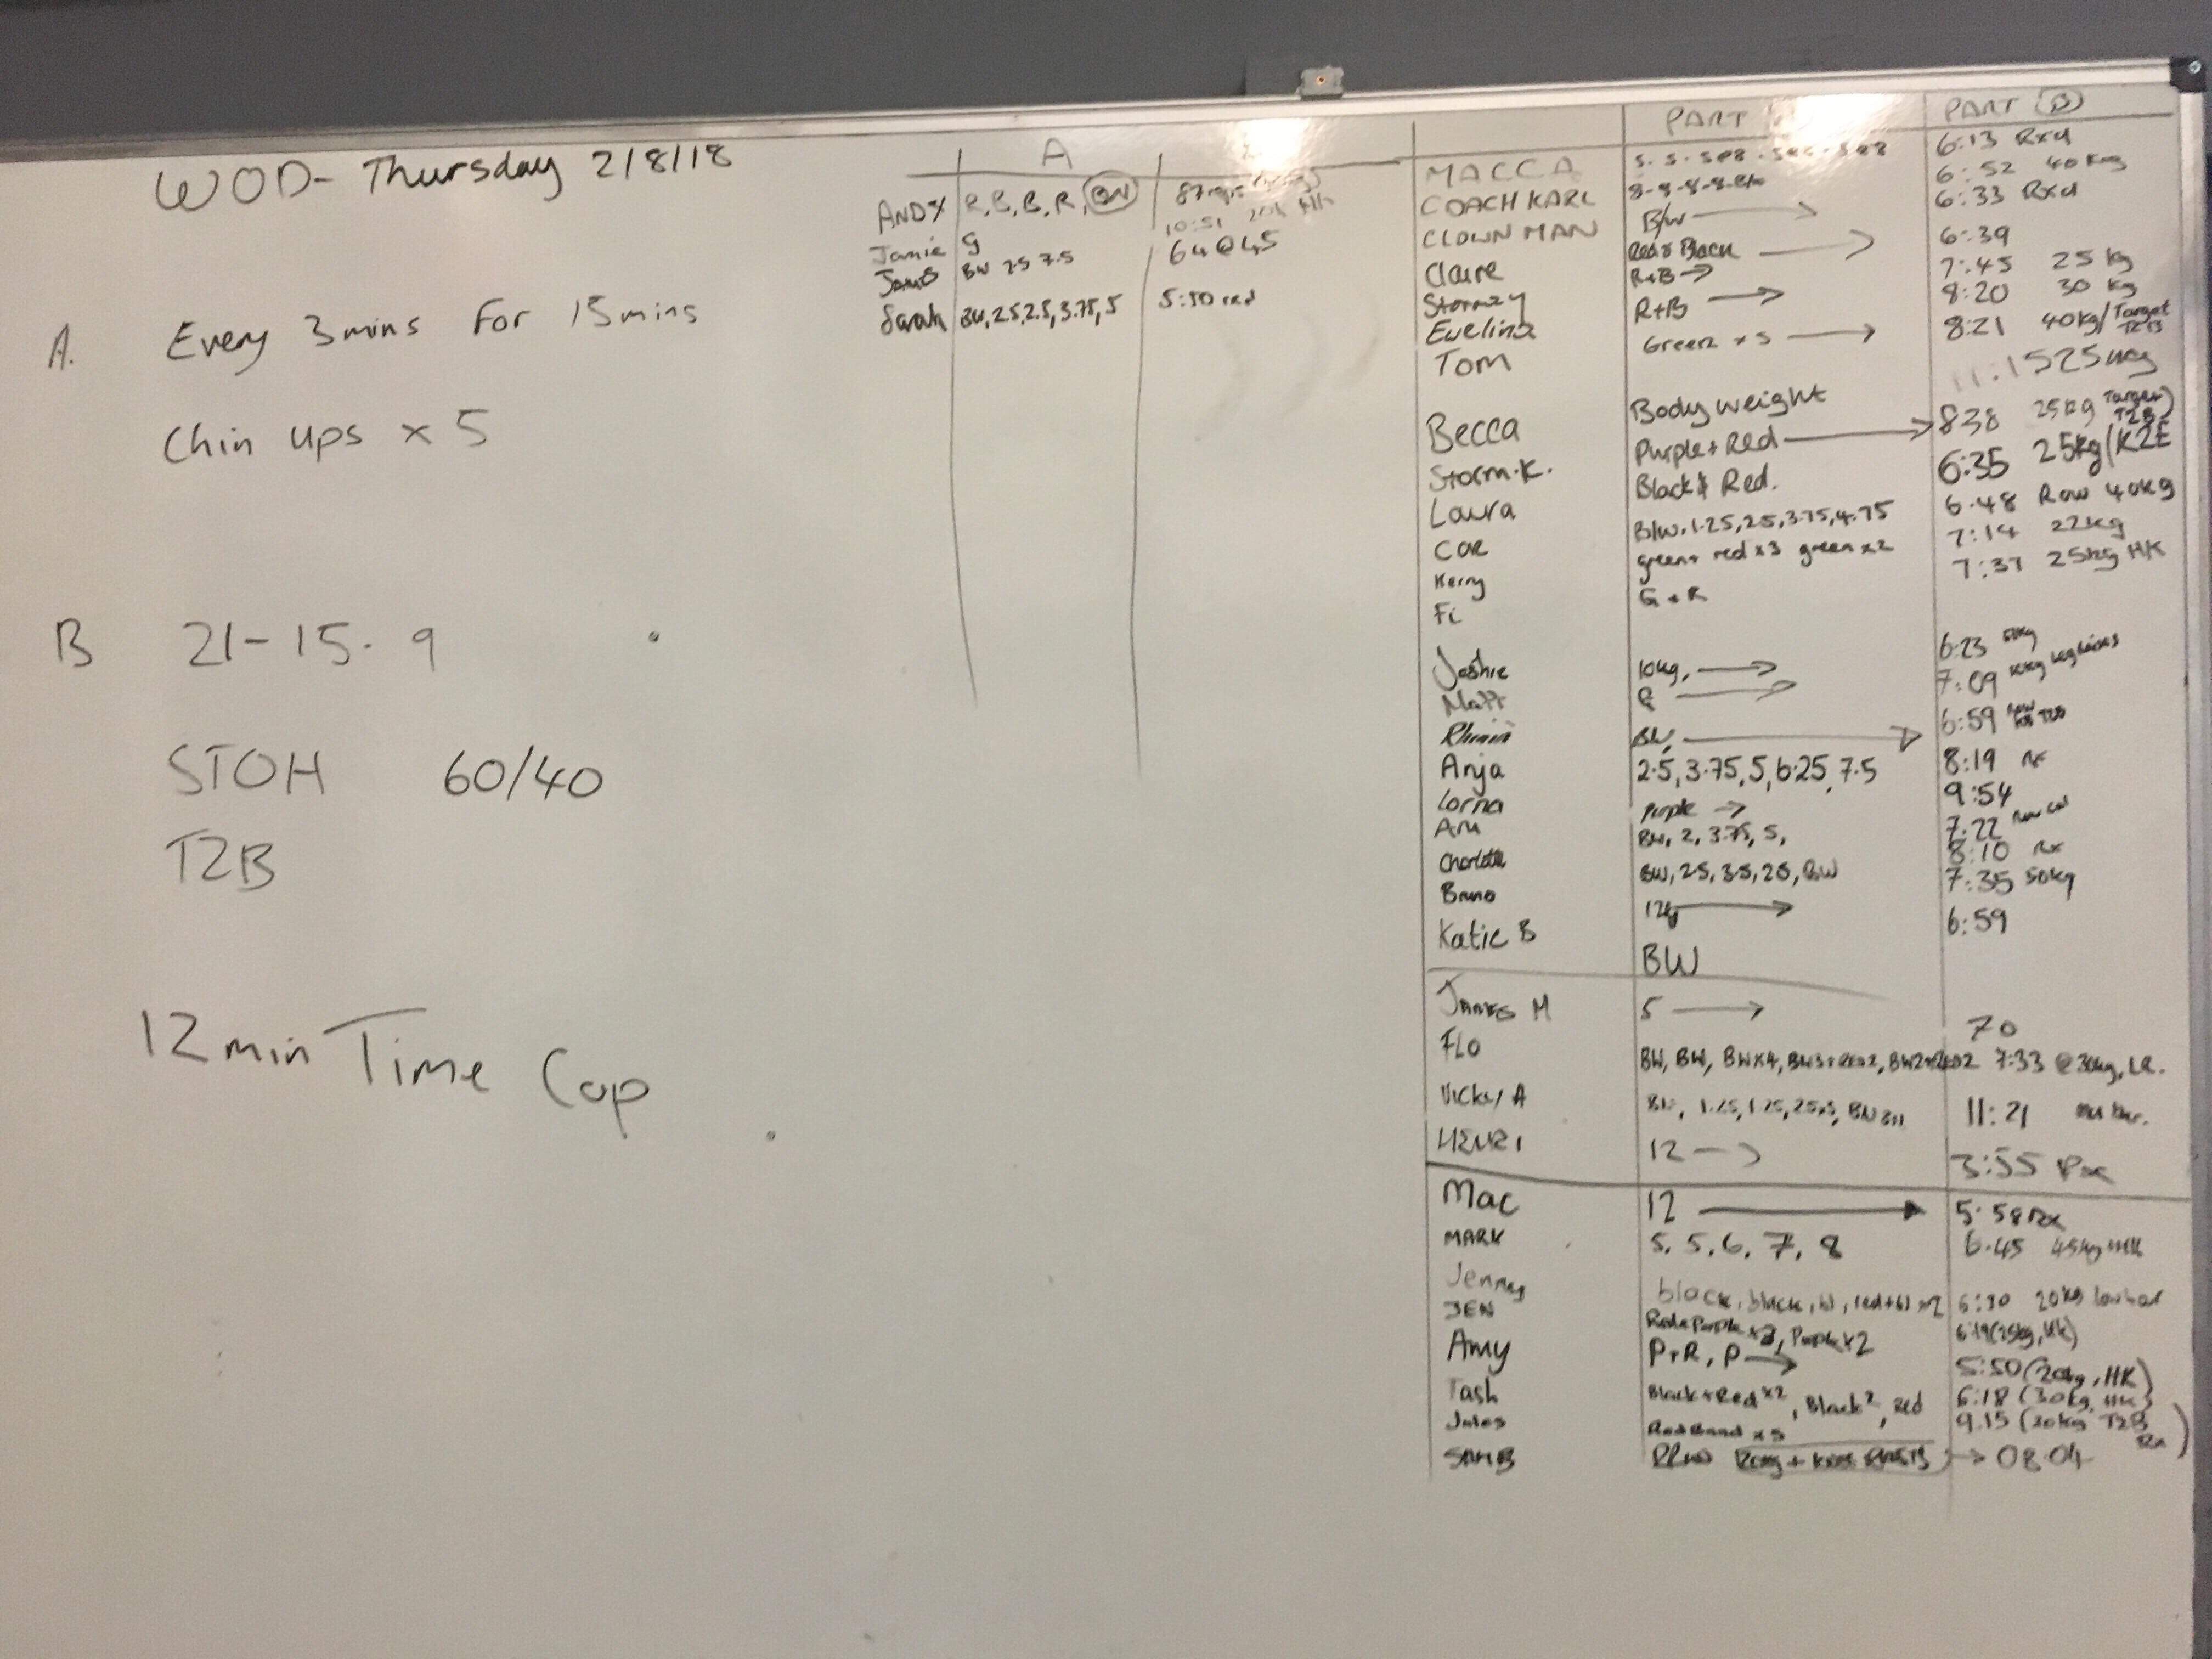 WOD- Thursday 2/8/18
A. Every 3mins for 15mins
Chin ups x 5
B 21-15-9
STOH 60/40
T2B
12min Time Cap
A
ANDY R, B, B, R, BW
10:51
Jamie g 64@45
James BW 2.5 7.5
Sarah BW, 2.5, 2.5, 3.75, 5 5:50 red
PART PART B
MACCA 6:13 Rxd
COACH KARL 8-8-8-8- 6:52 40kg
CLOWN MAN B/W → 6:33 Rxd
Claire Red & Black → 6:39
Stormzy R+B → 7:45 25 kg
Ewelina R+B → 8:20 30 kg
Tom Green x 5 → 8:21 40kg/Target T2B
Becca Body weight
Storm.K. Purple + Red → 838 25kg Target T2B
Laura Black & Red. 6:35 25kg (K2E
B/W, 1.25, 2.5, 3.75, 4.75 6.48 Row 40kg
Kerry green + red x3 green x2 7:14 22kg
Fi G + R 7:37 25kg HK
Joshie 10kg, → 6:23
Matt → 7:09 leg raises
BW, → 6:59 Row T2B
Anja 2.5, 3.75, 5, 6.25, 7.5 8:19 RX
Lorna Purple → 9:54
BW, 2, 3.75, 5, 7.22 Row
Charlotte BW, 2.5, 3.5, 2.5, BW 8:10 Rx
Bruno 12kg → 7:35 50kg
Katie B BW 6:59
James M 5 → 70
FLO BW, BW, BWx4, 7:33 @30kg, LR.
Vicky A 1.25, 1.25, 11:21
HENRI 12 → 3:55 Rx
Mac 12 → 5:58 Rx
MARK 5, 5, 6, 7, 8 6.45 45kg HK
Jenney black, black, 20kg
JEN Purple x2
Amy P+R, P → 5:50 (20kg, HK)
Tash Black + Red x2, Black², red 6:18 (30kg, HK)
Jules Red Band x5 9.15 (20kg T2B Rx)
SAM B → 08.04